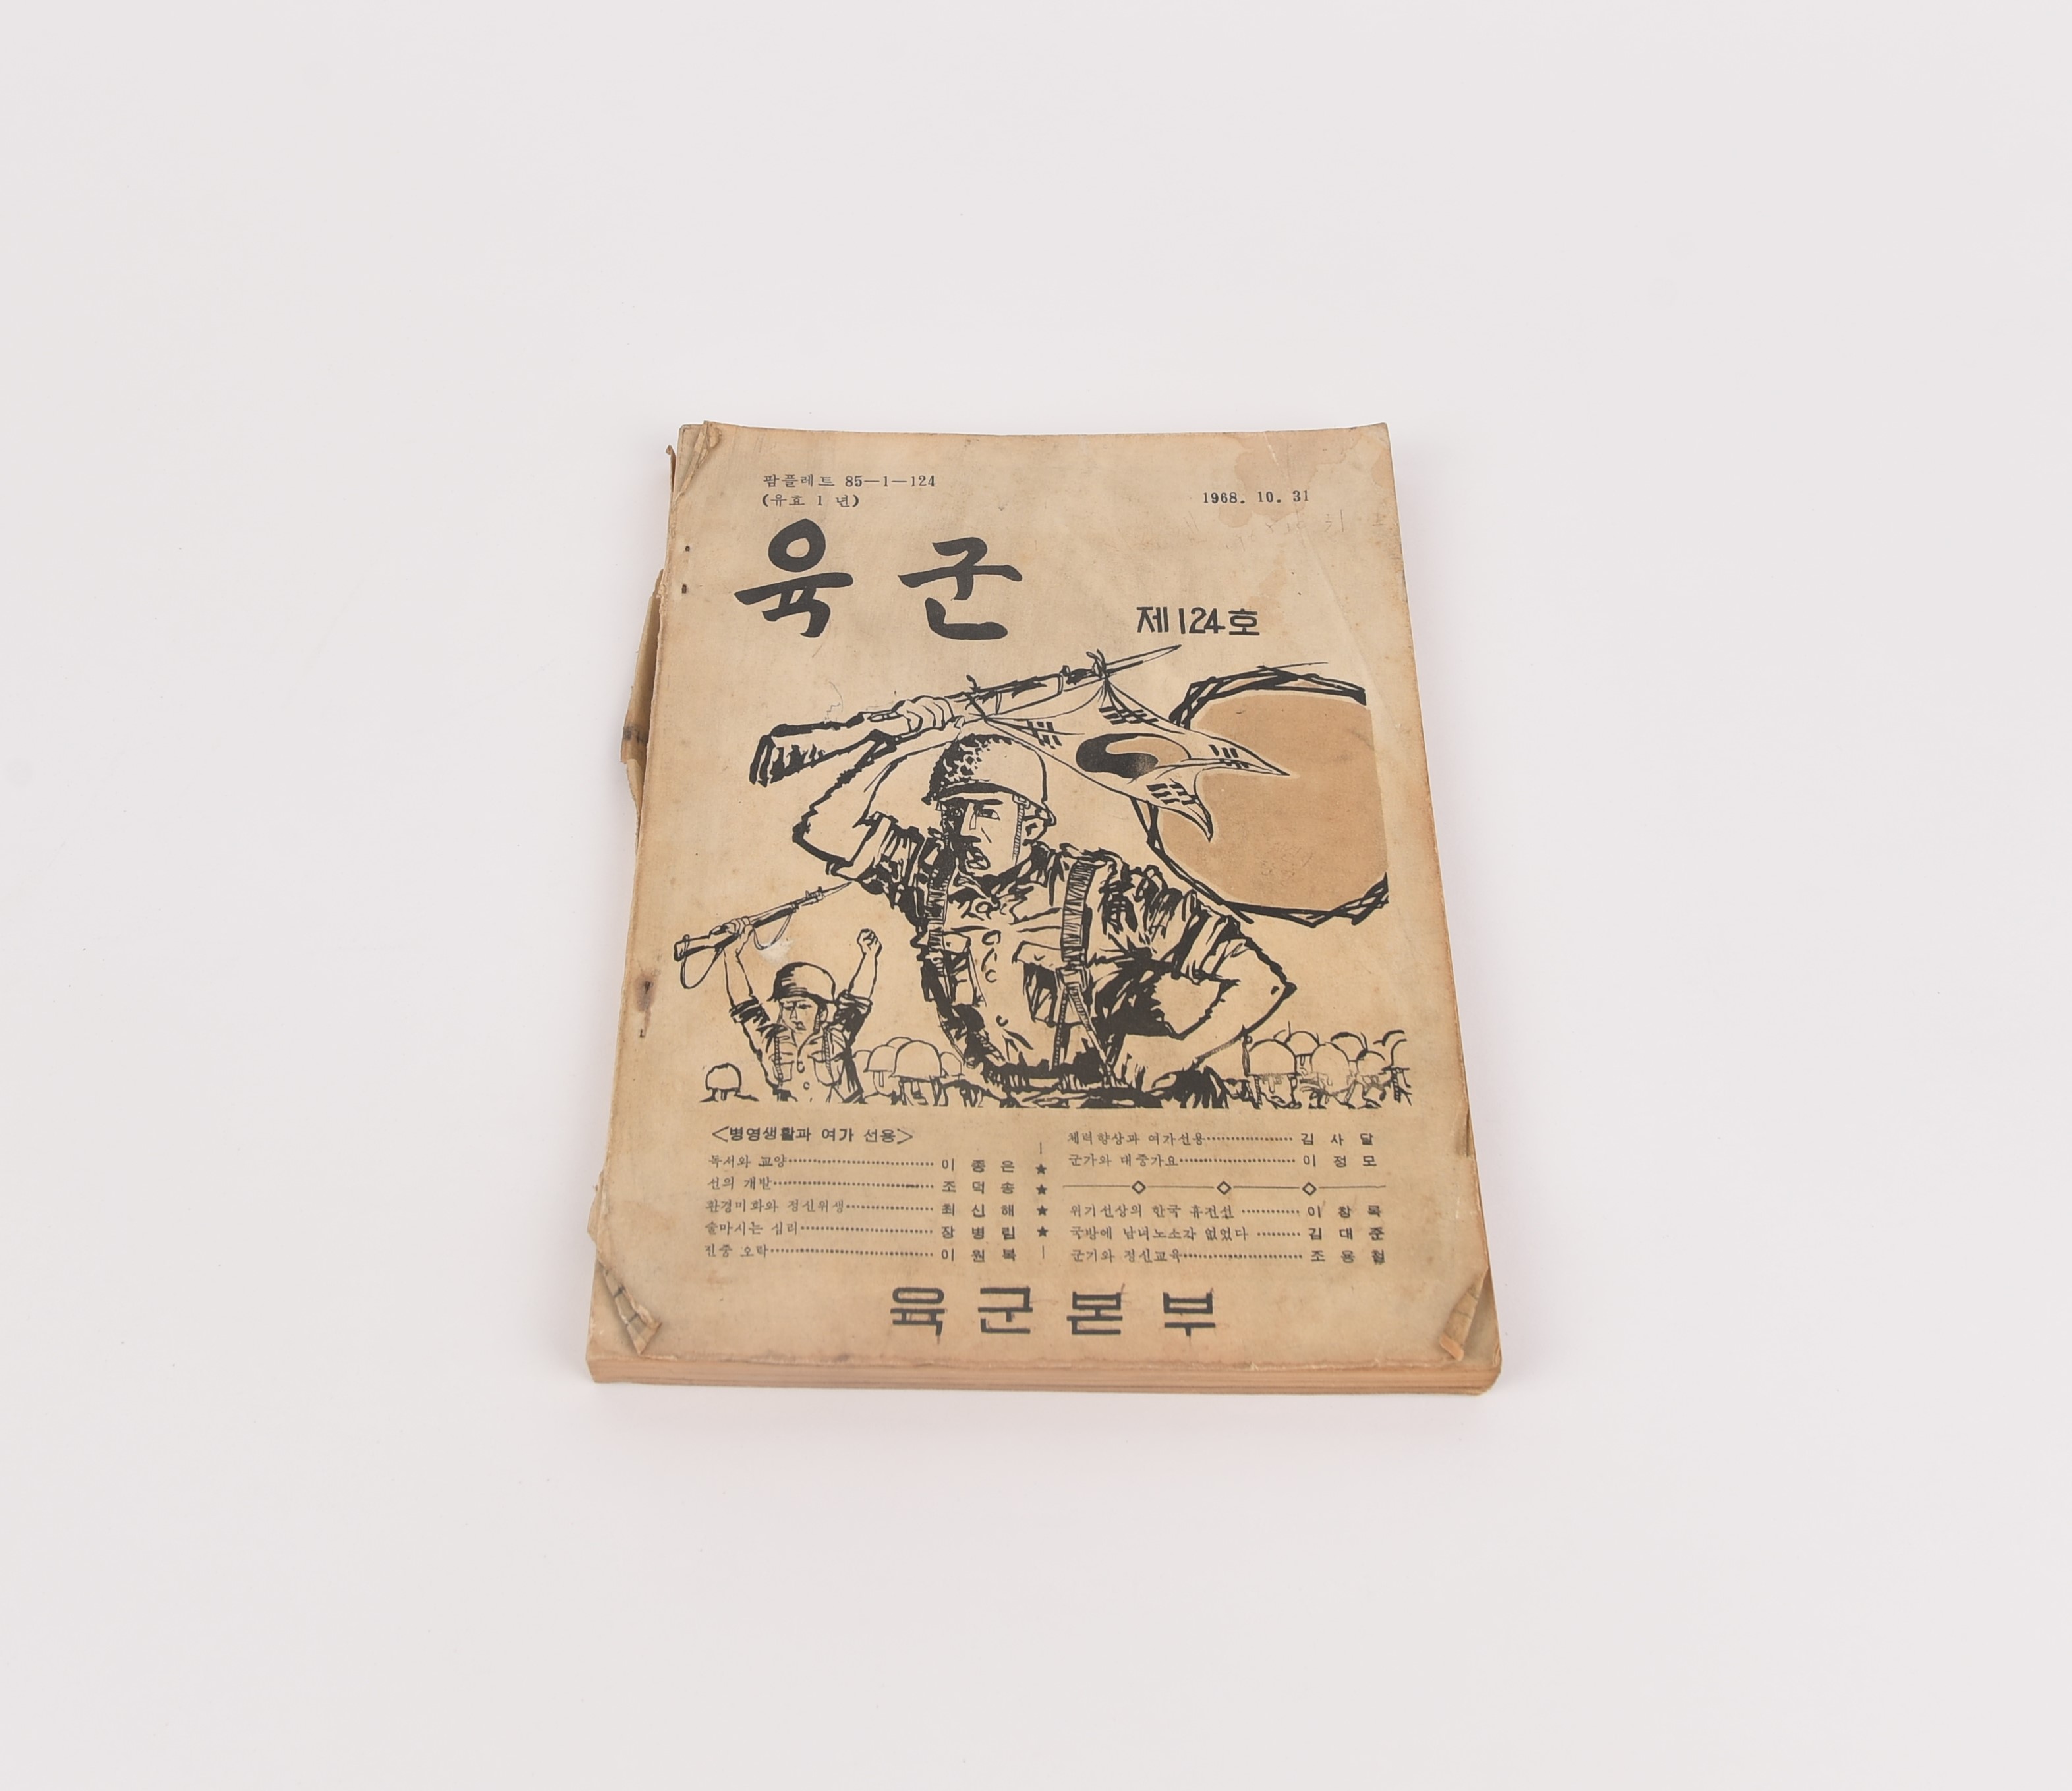 팜플레트 85—1—124
(유효 1 년)
1968. 10. 31
육군
제124호
<병영생활과 여가 선용>
독서와 교양 이종은
선의 개발 조덕송
환경미화와 정신위생 최신해
술마시는 심리 장병림
진중 오락 이원복
체력향상과 여가선용 김사달
군가와 대중가요 이정모
위기선상의 한국 휴전선 이창록
국방에 남녀노소가 없었다 김대준
군기와 정신교육 조용철
육군본부